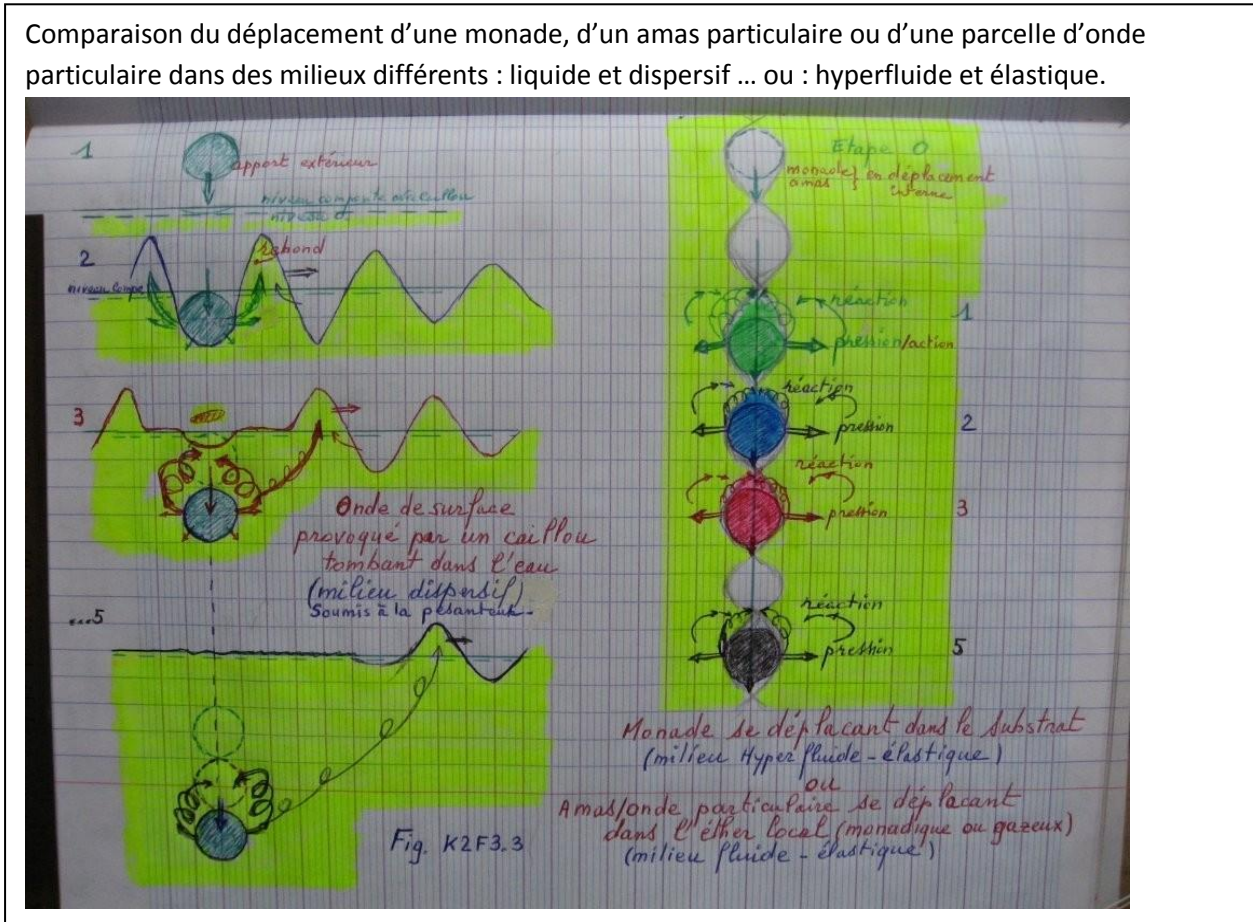 Comparaison du déplacement d’une monade, d’un amas particulaire ou d’une parcelle d’onde
particulaire dans des milieux différents : liquide et dispersif … ou : hyperfluide et élastique.
1
apport extérieur
niveau compente avec caillou
niveau 0
2
rebond
niveau compe
3
Onde de surface
provoqué par un caillou
tombant dans l'eau
(milieu dispersif)
Soumis à la pesanteur.
...5
Fig. K2F3.3
Etape 0
monade} en déplacement
amas interne
réaction
1
pression/action
réaction
pression
2
réaction
pression
3
réaction
pression
5
Monade se déplacant dans le substrat
(milieu Hyper fluide - élastique)
ou
Amas/onde particulaire se déplacant
dans l'éther local (monadique ou gazeux)
(milieu fluide - élastique)